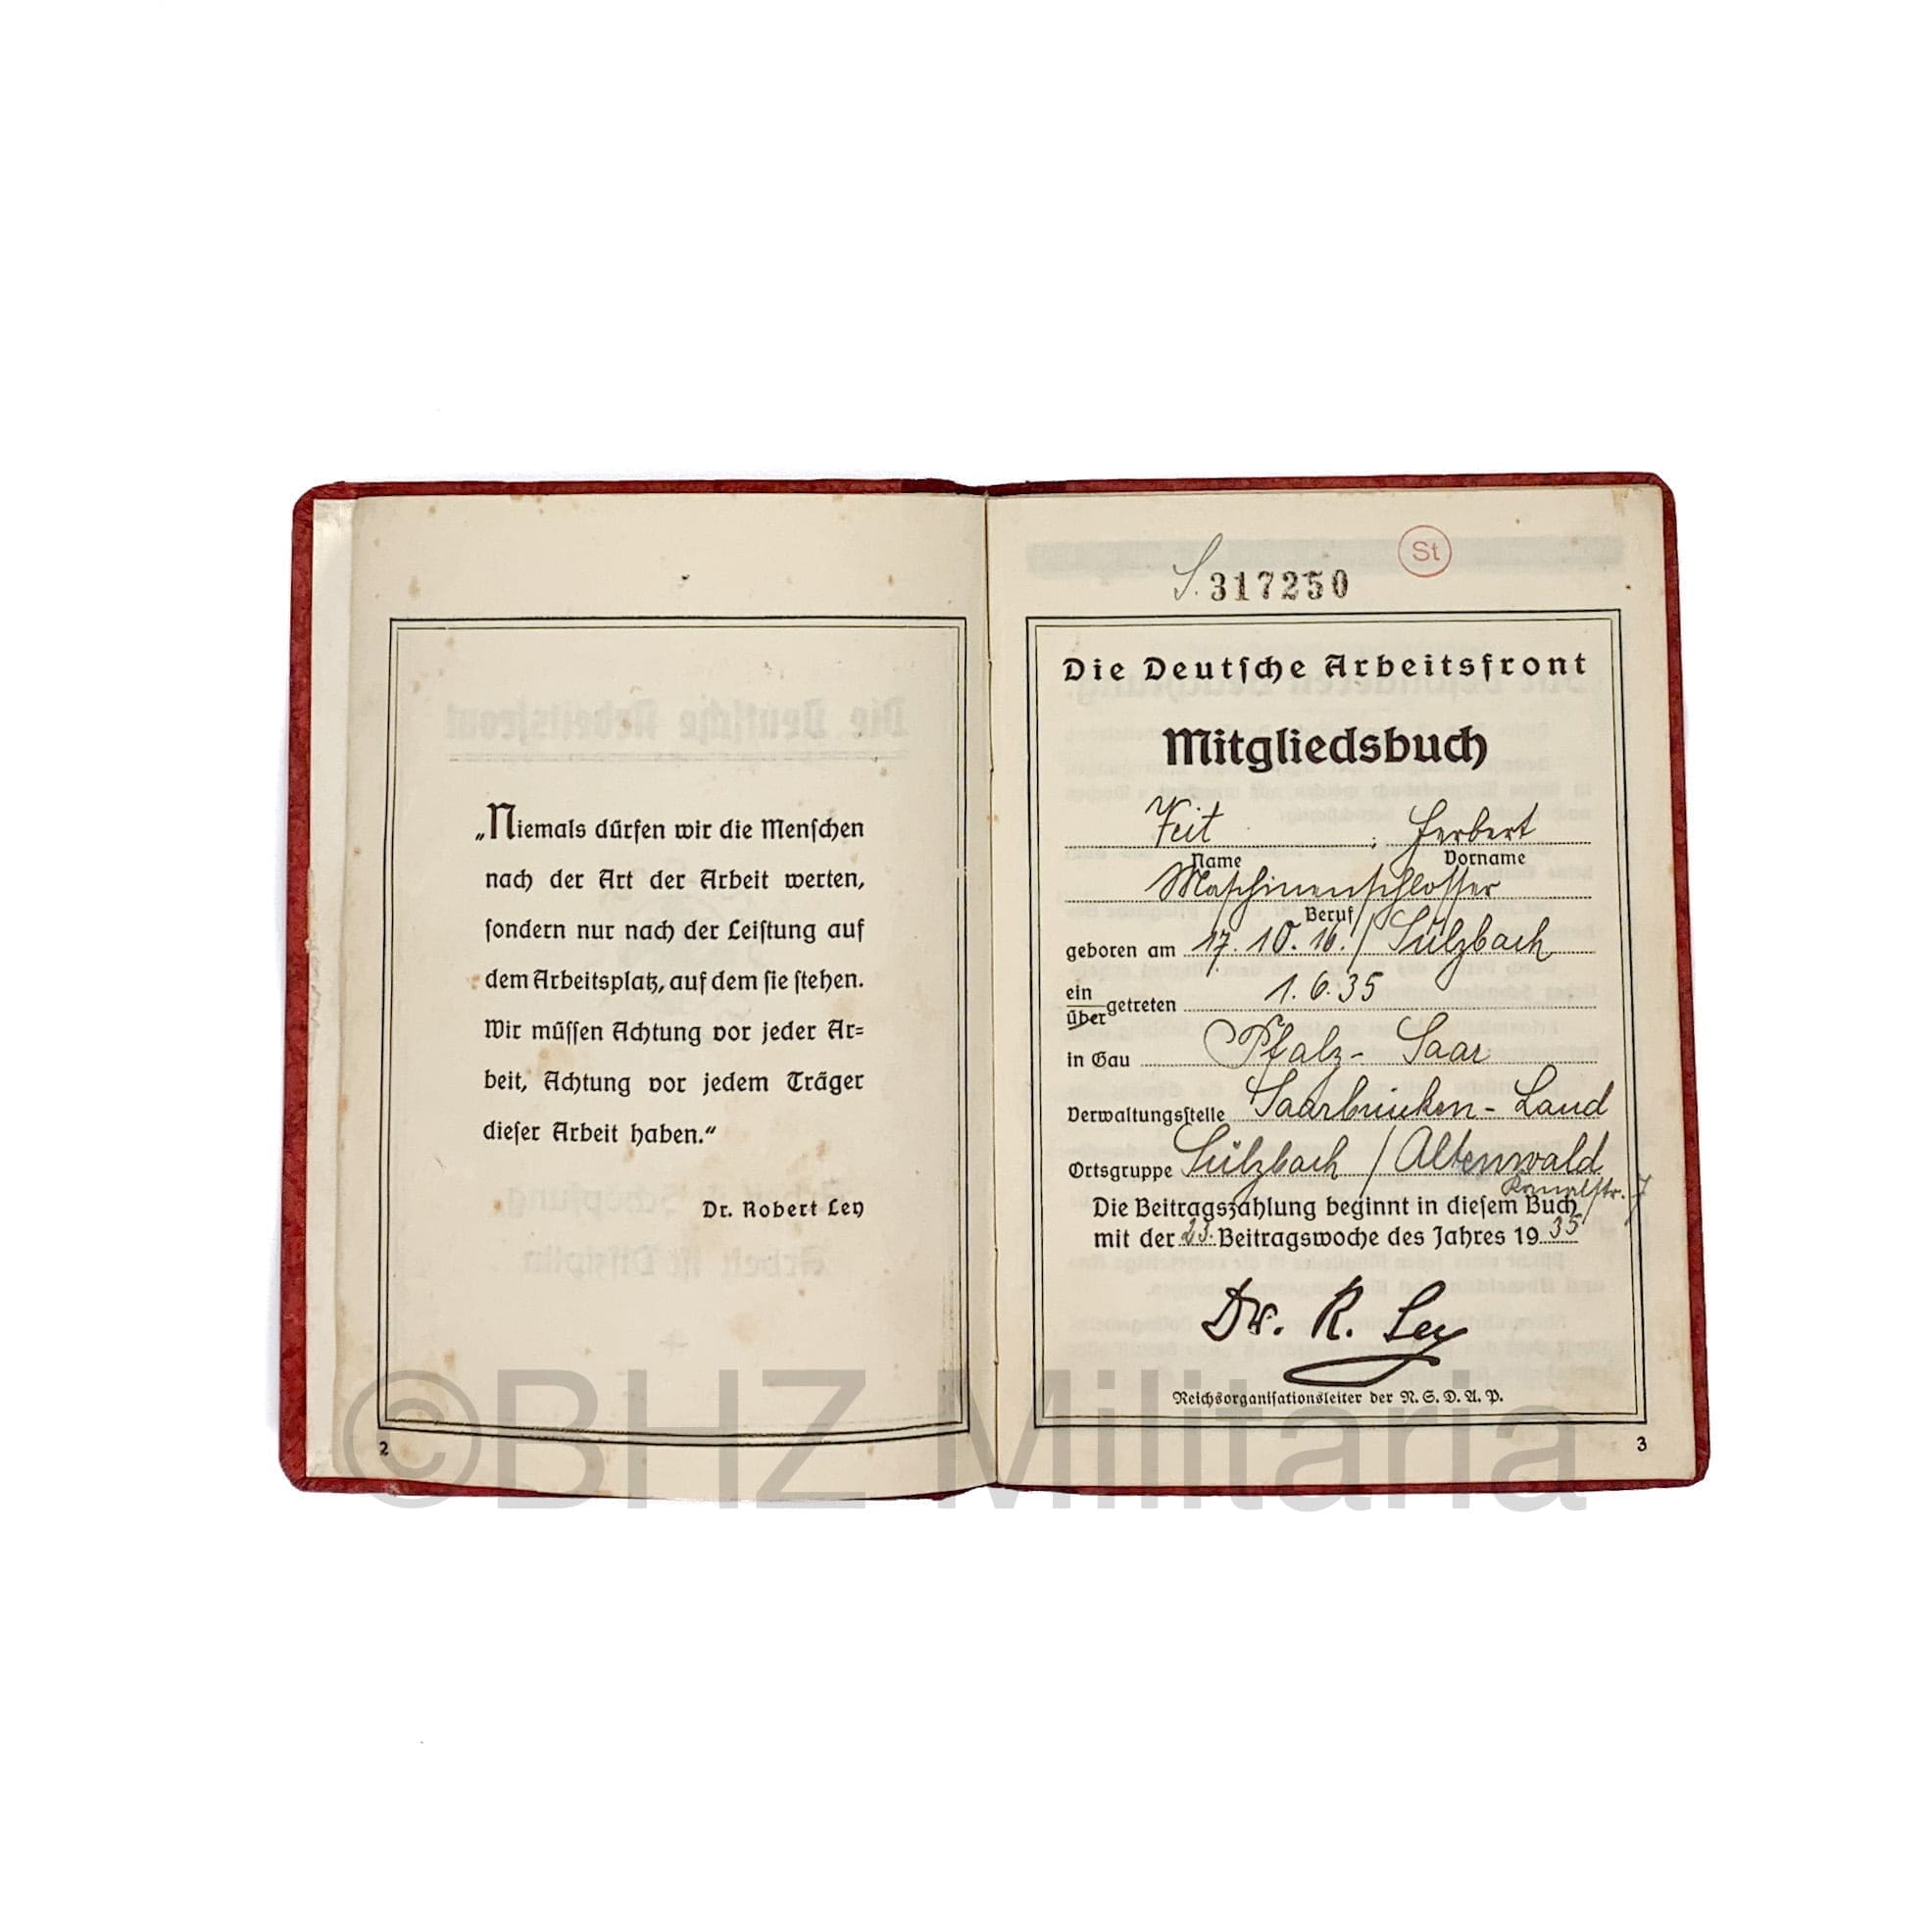 „Niemals dürfen wir die Menschen
nach der Art der Arbeit werten,
sondern nur nach der Leistung auf
dem Arbeitsplatz, auf dem sie stehen.
Wir müssen Achtung vor jeder Ar=
beit, Achtung vor jedem Träger
dieser Arbeit haben.“
Dr. Robert Ley
2
St
S. 317250
Die Deutsche Arbeitsfront
Mitgliedsbuch
Veit ; Herbert
Name Vorname
Maschinenschlosser
Beruf
geboren am 17. 10. 16. / Sulzbach
ein
getreten 1. 6. 35
über
in Gau Pfalz- Saar
Verwaltungsstelle Saarbrücken - Land
Ortsgruppe Sulzbach / Altenwald
7
Die Beitragszahlung beginnt in diesem Buch
mit der 23. Beitragswoche des Jahres 1935
Dr. R. Ley
Reichsorganisationsleiter der N. S. D. A. P.
3
©BHZ Militaria